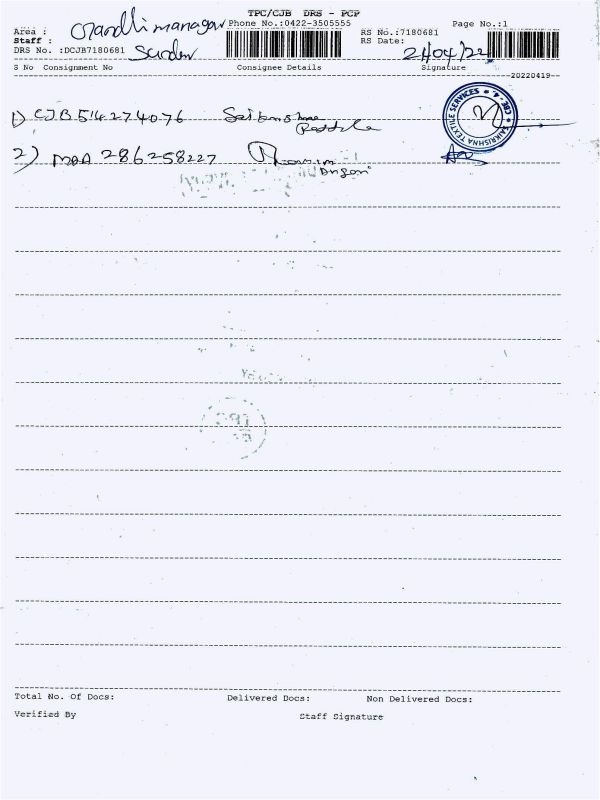 TPC/CJB DRS - PCP
Area : Gandhimanagar Phone No.:0422-3505555 RS No.:7180681 Page No.:1
Staff : RS Date: 21/04/22
DRS No. :DCJB7180681
S No Consignment No Consignee Details Signature
20220419
1) CJB 514274076
SAIKRISHNA TEXTILE SERVICES CBE - 4
2) MAA 286258227
Total No. Of Docs: Delivered Docs: Non Delivered Docs:
Verified By Staff Signature